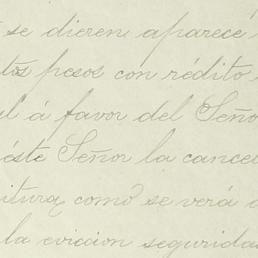 se dieren aparece
tos pesos con rédito
el á favor del Seño
éste Señor la cance
itura como se verá
la eviccion seguridad